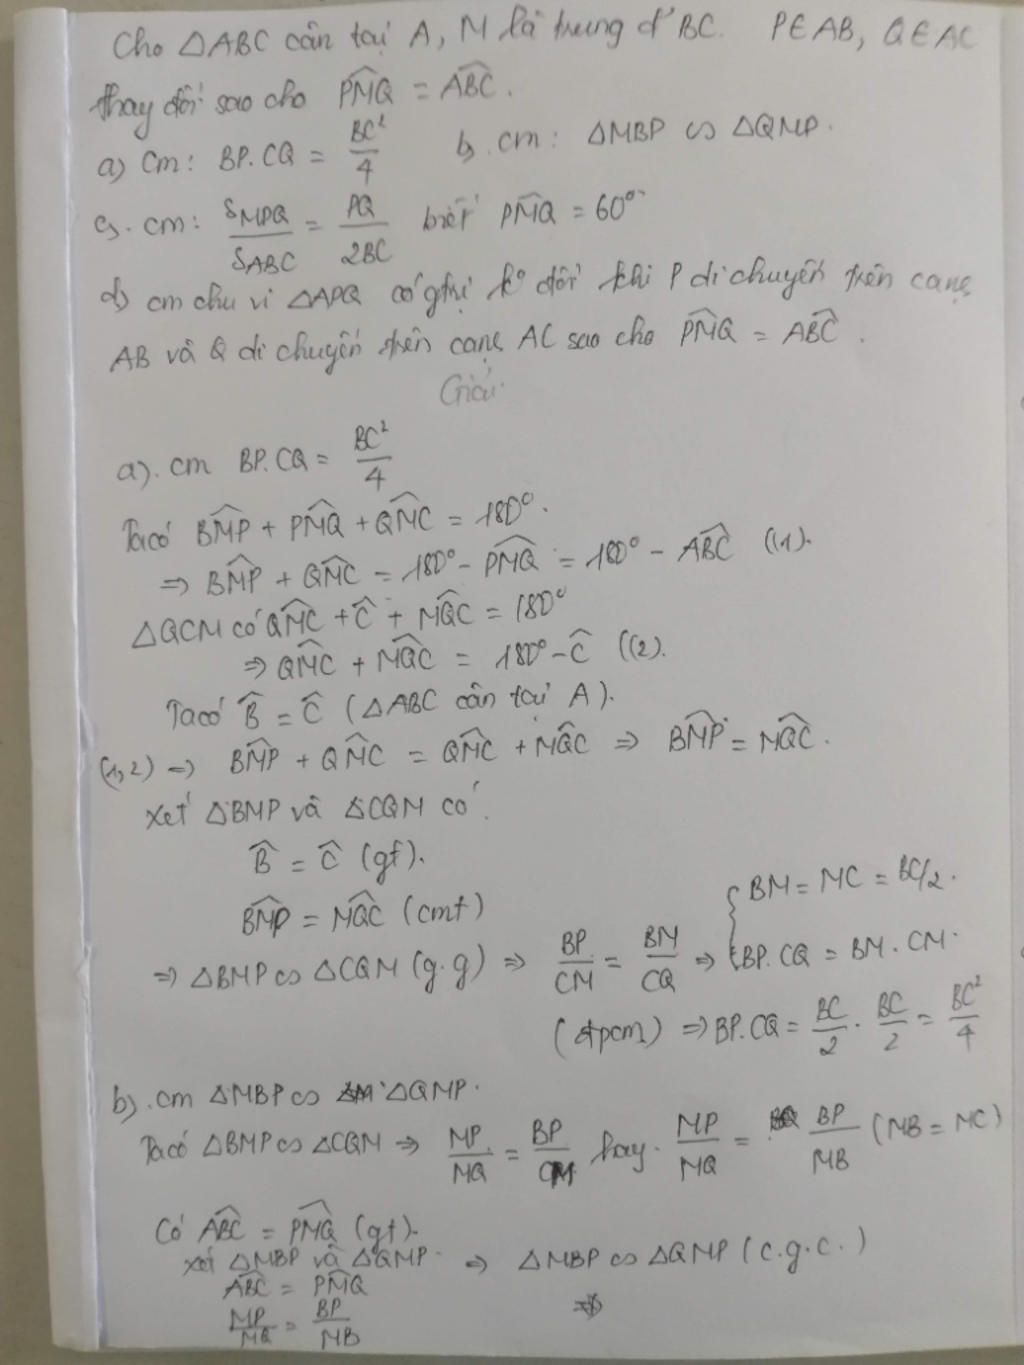 Cho △ABC cân tại A, M là trung đ' BC. P∈AB, Q∈AC
thay đổi sao cho \widehat{PMQ} = \widehat{ABC}.
a) Cm: BP.CQ = \frac{BC²}{4} b). cm: △MBP ∽ △QMP.
c). cm: \frac{S_{MPQ}}{S_{ABC}} = \frac{PQ}{2BC} biết \widehat{PMQ} = 60°
d) cm chu vi △APQ có gtrị k° đổi khi P di chuyển trên cạnh
AB và Q di chuyển trên cạnh AC sao cho \widehat{PMQ} = \widehat{ABC}.
Giải.
a). cm BP.CQ = \frac{BC²}{4}
Ta có \widehat{BMP} + \widehat{PMQ} + \widehat{QMC} = 180°.
⇒ \widehat{BMP} + \widehat{QMC} = 180° - \widehat{PMQ} = 180° - \widehat{ABC} (1).
△QCM có \widehat{QMC} + \widehat{C} + \widehat{MQC} = 180°
⇒ \widehat{QMC} + \widehat{MQC} = 180° - \widehat{C} (2).
Ta có \widehat{B} = \widehat{C} (△ABC cân tại A).
(1,2) ⇒ \widehat{BMP} + \widehat{QMC} = \widehat{QMC} + \widehat{MQC} ⇒ \widehat{BMP} = \widehat{MQC}.
Xét △BMP và △CQM có
\widehat{B} = \widehat{C} (gt).
\widehat{BMP} = \widehat{MQC} (cmt)
⇒ △BMP ∽ △CQM (g.g) ⇒ \frac{BP}{CM} = \frac{BM}{CQ} ⇒ { BM = MC = BC/2.
BP.CQ = BM.CM.
(đpcm) ⇒ BP.CQ = \frac{BC}{2} . \frac{BC}{2} = \frac{BC²}{4}
b). cm △MBP ∽ △QMP.
Ta có △BMP ∽ △CQM ⇒ \frac{MP}{MQ} = \frac{BP}{CM} hay \frac{MP}{MQ} = \frac{BP}{MB} (MB = MC)
Có \widehat{ABC} = \widehat{PMQ} (gt).
xét △MBP và △QMP. ⇒ △MBP ∽ △QMP (c.g.c.)
\widehat{ABC} = \widehat{PMQ}
\frac{MP}{MQ} = \frac{BP}{MB}